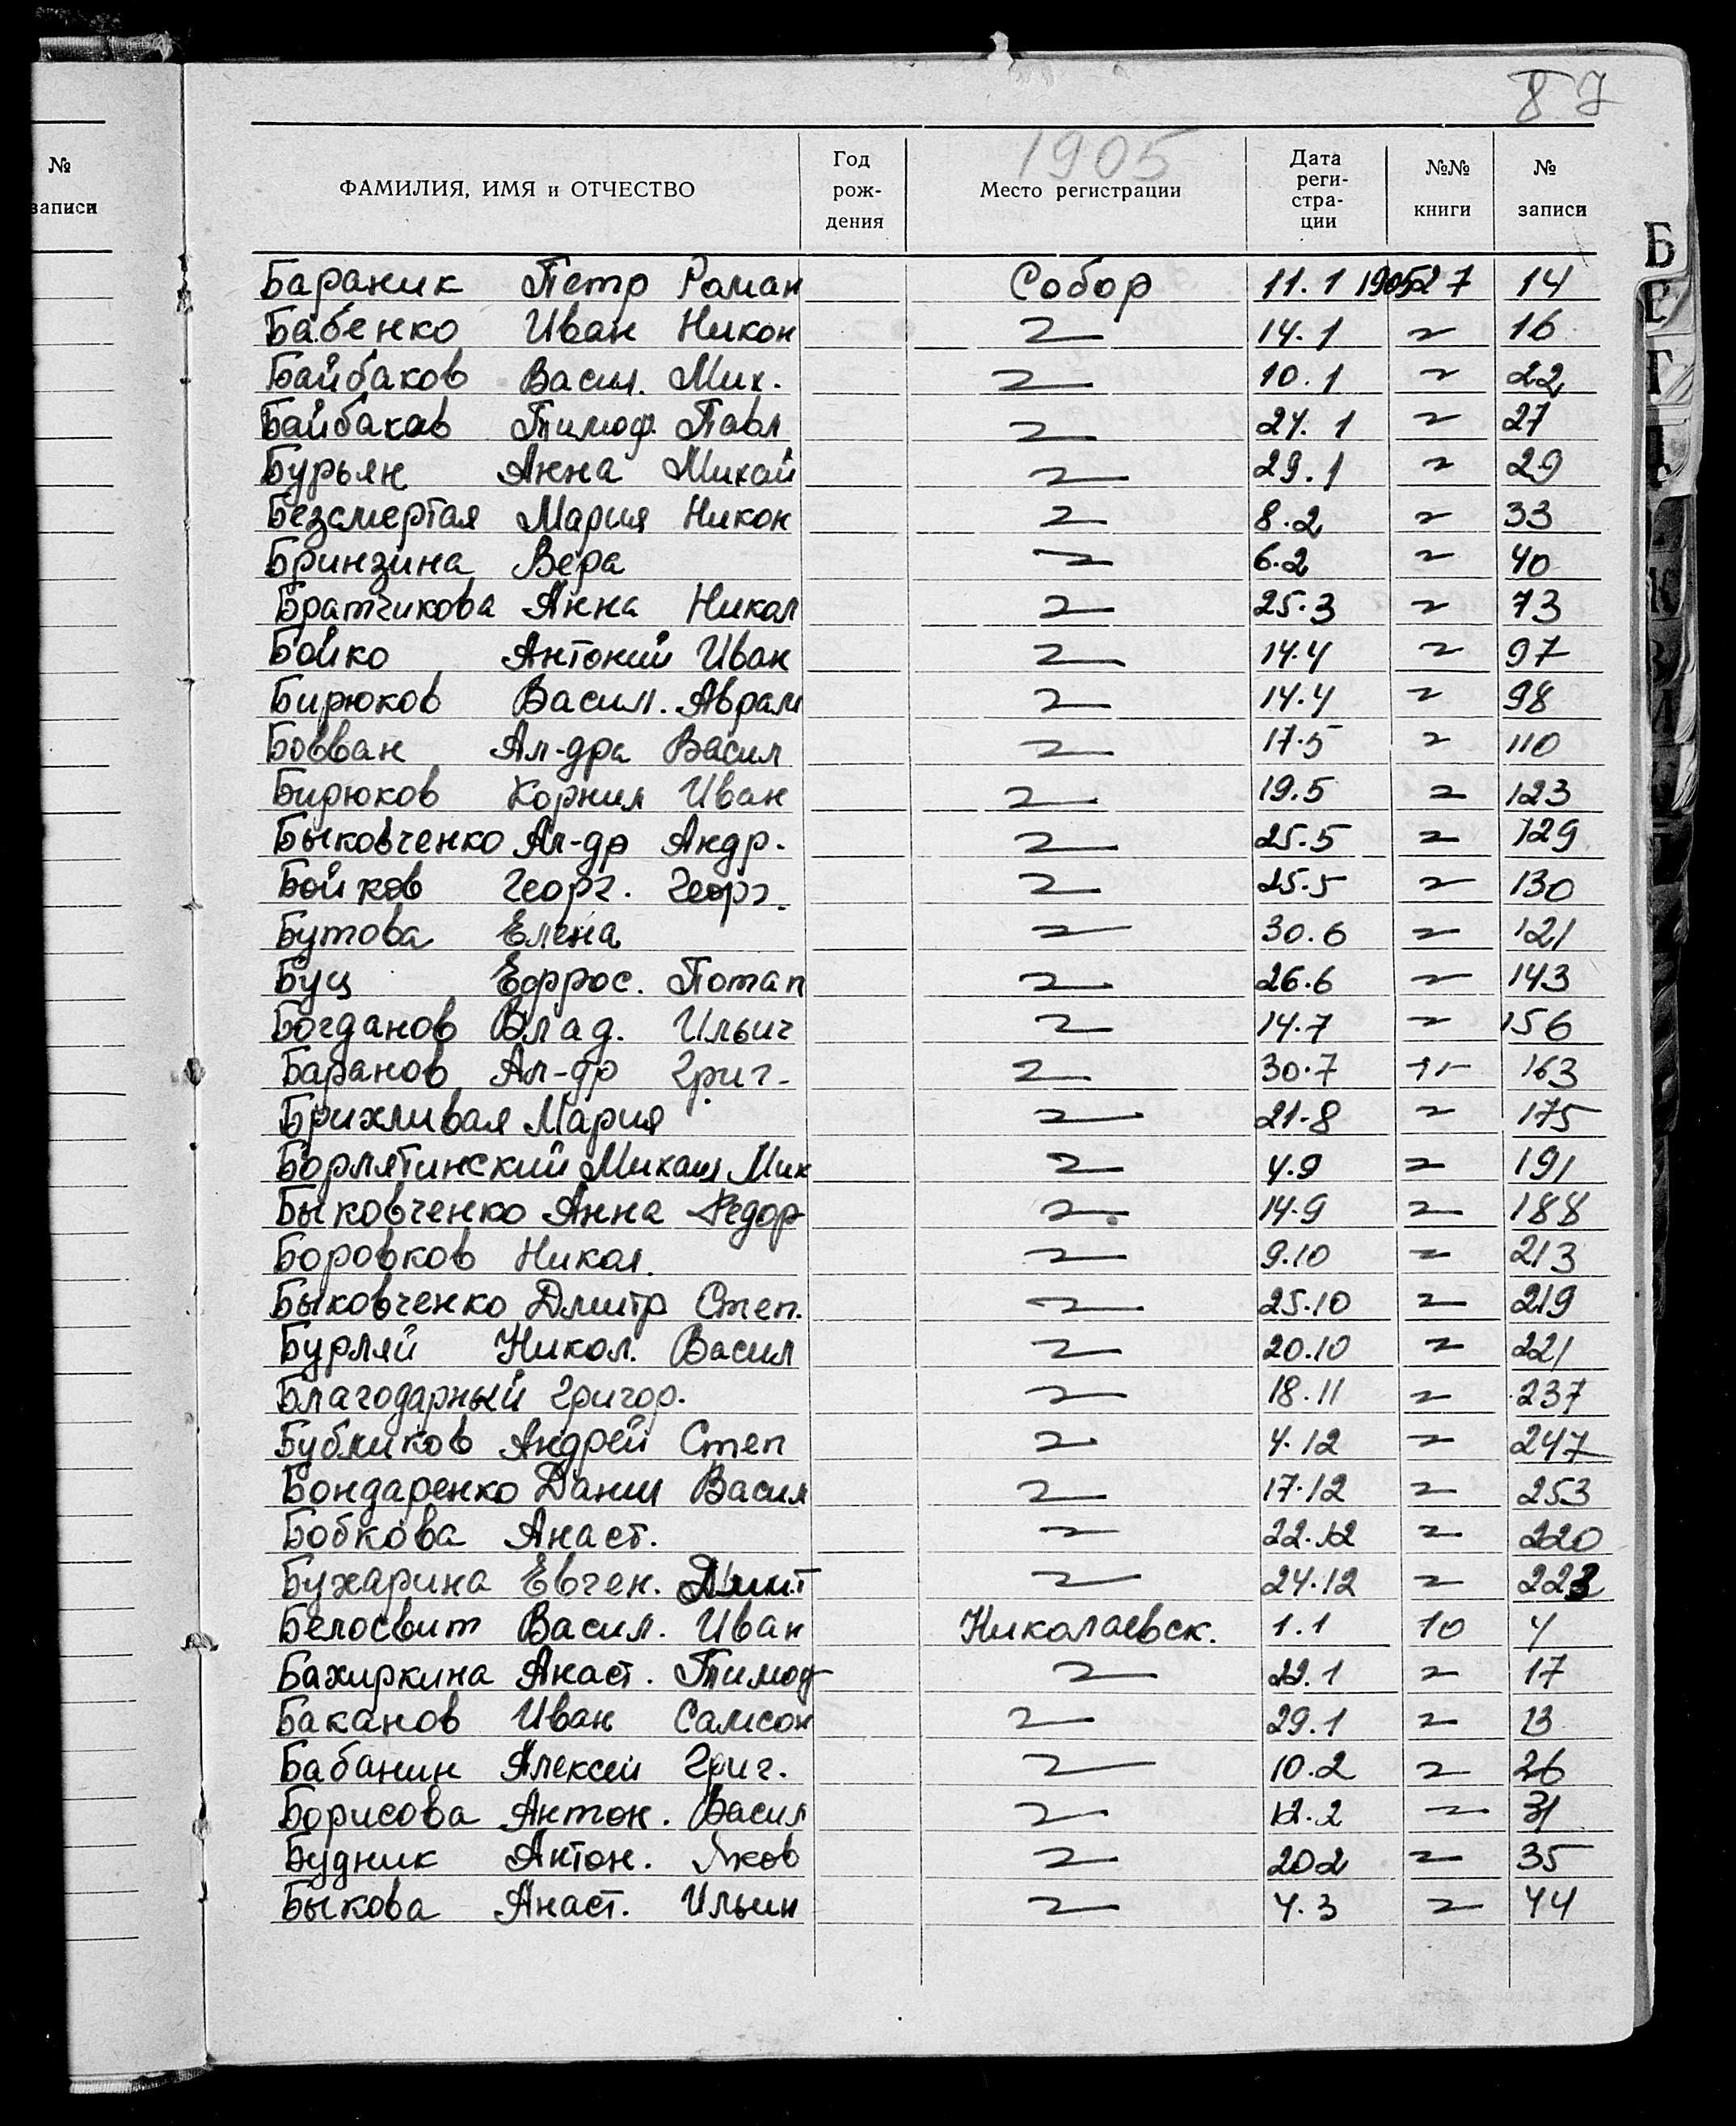 87
1905
№ записи
ФАМИЛИЯ, ИМЯ и ОТЧЕСТВО Год рождения Место регистрации Дата регистрации №№ книги № записи
Бараник Петр Роман Собор 11.1 1905 27 14
Бабенко Иван Никон 〃 14.1 〃 16
Байбаков Васил. Мих. 〃 10.1 〃 22
Байбаков Тимоф. Павл 〃 24.1 〃 27
Бурьян Анна Михай 〃 29.1 〃 29
Безсмертая Мария Никон 〃 8.2 〃 33
Бринзина Вера 〃 6.2 〃 40
Братчикова Анна Никол 〃 25.3 〃 73
Бойко Антоний Иван 〃 14.4 〃 97
Бирюков Васил. Аврам 〃 14.4 〃 98
Бовван Ал-дра Васил 〃 17.5 〃 110
Бирюков Корнил Иван 〃 19.5 〃 123
Быковченко Ал-др Андр. 〃 25.5 〃 129
Бойков Георг. Георг. 〃 25.5 〃 130
Бутова Елена 〃 30.6 〃 121
Буц Ефрос. Потап 〃 26.6 〃 143
Богданов Влад. Ильич 〃 14.7 〃 156
Баранов Ал-др Григ. 〃 30.7 〃 163
Брихливая Мария 〃 21.8 〃 175
Борлятинский Михаил Мих 〃 4.9 〃 191
Быковченко Анна Федор 〃 14.9 〃 188
Боровков Никол. 〃 9.10 〃 213
Быковченко Дмитр Степ. 〃 25.10 〃 219
Бурляй Никол. Васил 〃 20.10 〃 221
Благодарный Григор. 〃 18.11 〃 237
Бубликов Андрей Степ 〃 4.12 〃 247
Бондаренко Данил Васил 〃 17.12 〃 253
Бобкова Анаст. 〃 22.12 〃 220
Бухарина Евген. Дмит 〃 24.12 〃 223
Белосвит Васил. Иван Николаевск. 1.1 10 4
Бахиркина Анаст. Тимоф 〃 22.1 〃 17
Баканов Иван Самсон 〃 29.1 〃 13
Бабанин Алексей Григ. 〃 10.2 〃 26
Борисова Антон. Васил 〃 12.2 〃 31
Будник Антон. Яков 〃 20.2 〃 35
Быкова Анаст. Ильин 〃 4.3 〃 44
Б
Г